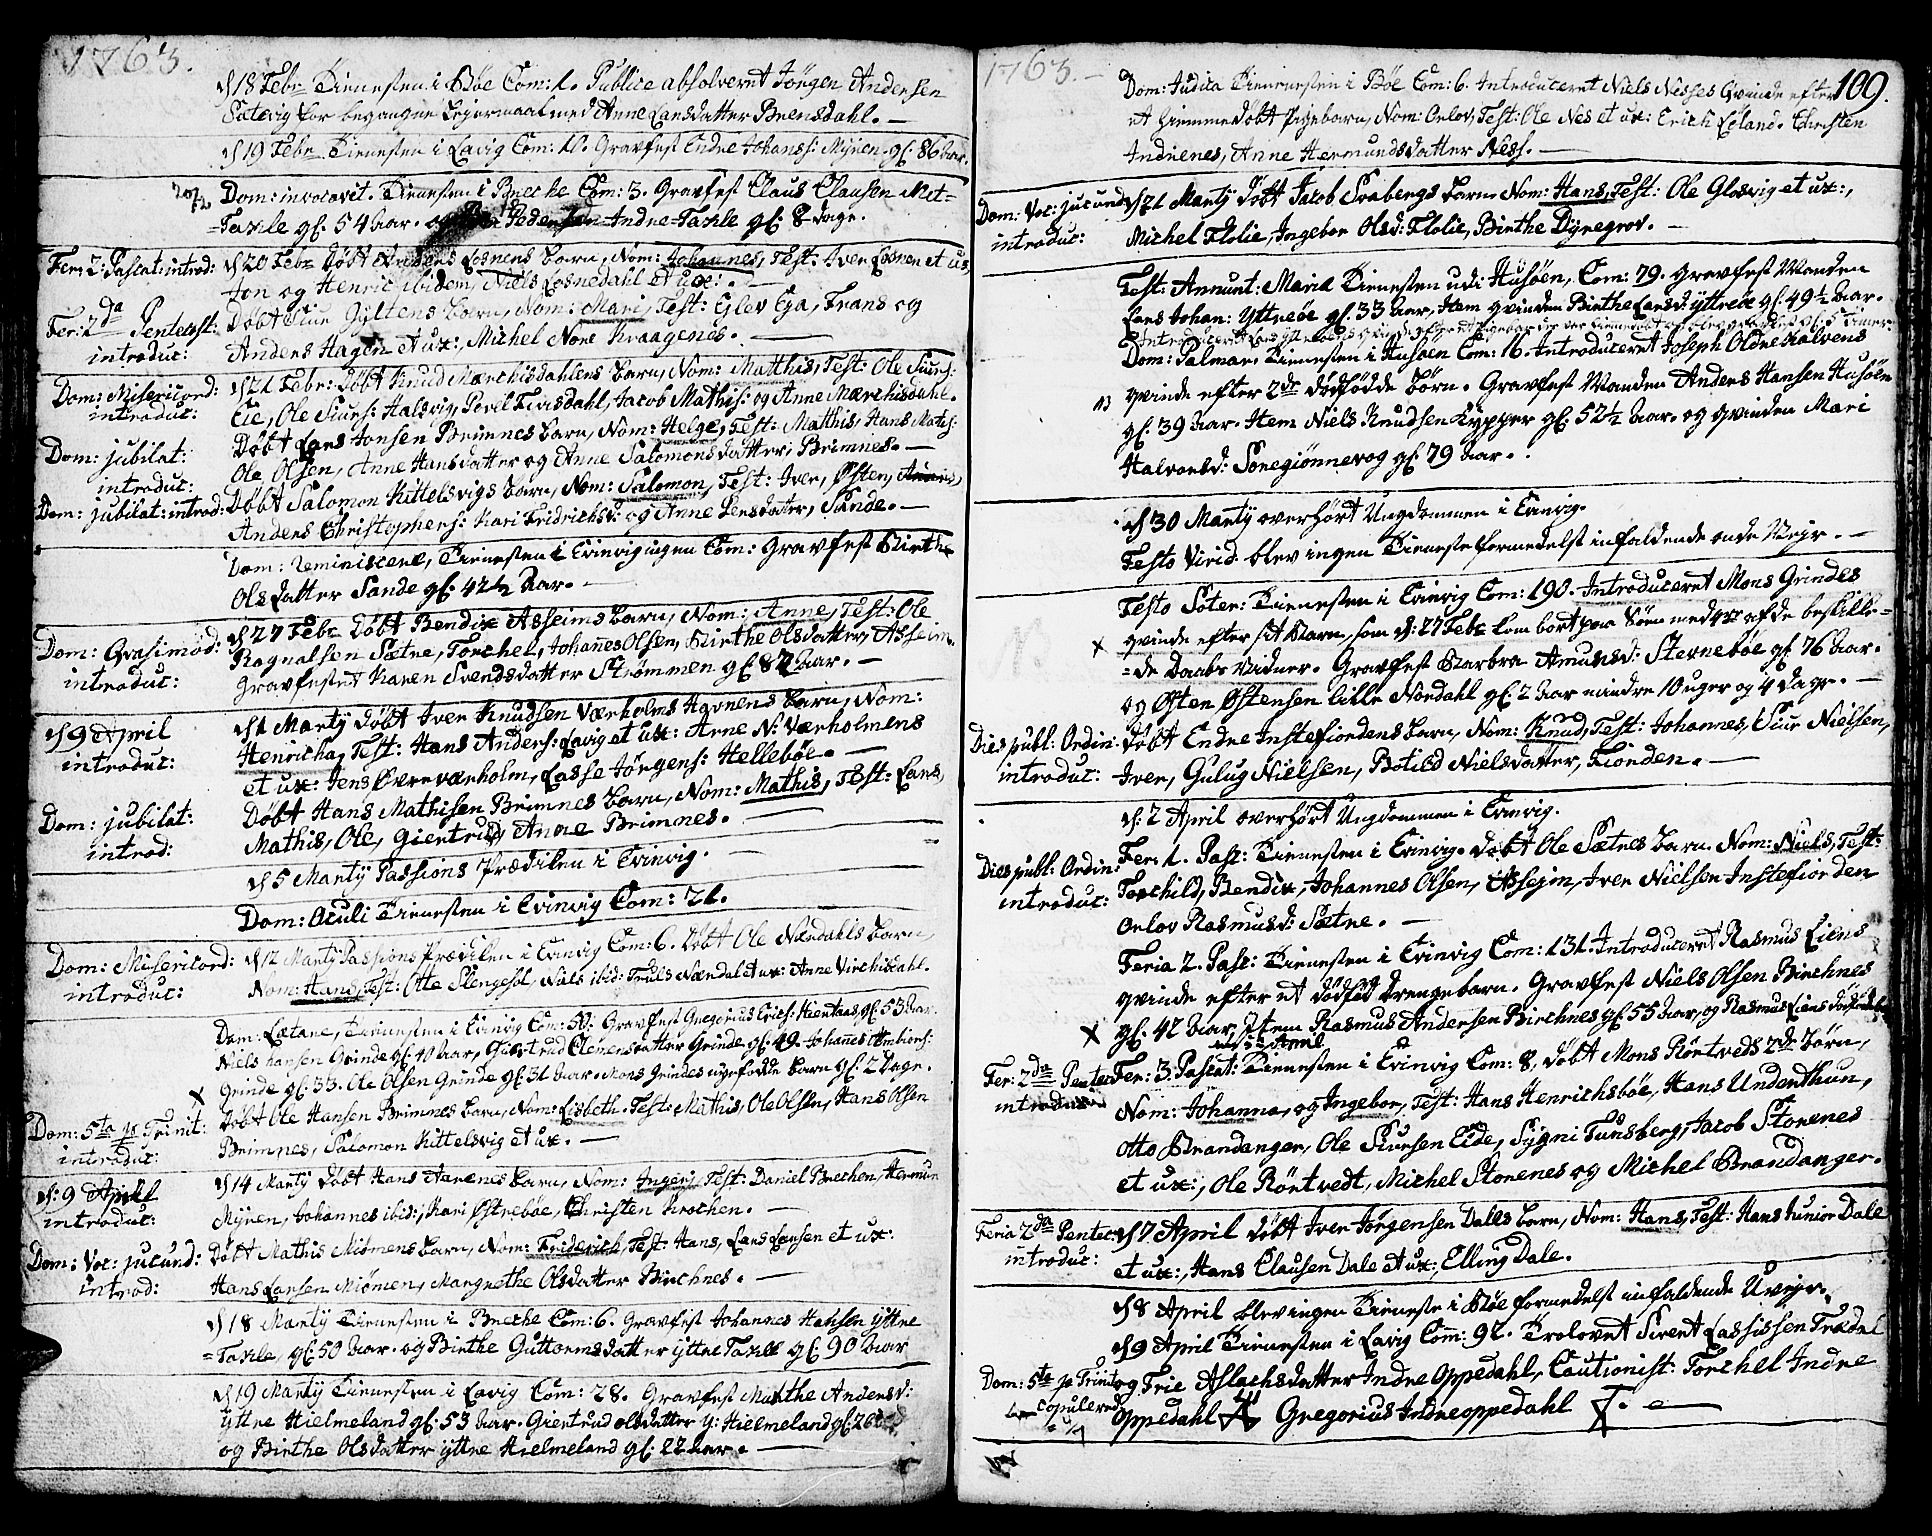 1763.
d 18 Febr Tienesten i Bøe Com: 1. Publice absolveret Jörgen Andersen
Sætevig for begangne Lejermaal med Anne Larsdatter Brensdahl. —
d 19 Febr Tienesten i Lavig Com: 10. Gravfest Endre Johanss: Myren gl: 86 Aar.
20/2 Dom: invocavit. Tienesten i Breche Com: 3. Gravfest Claus Clausen Mit-
=Taxle gl: 54 Aar. og Pedersen Andre-Taxle gl: 8 Dage.
Fer: 2: Pascat: introd: d 20 Febr Døbt Losnens barn, Nom: Johannes, Test: Iver Losnen et ux,
Jon og Henric ibidem, Niels Losnedahl et ux: —
Fer: 2da Pentecost: Døbt Siur Gyltens barn, Nom: Mari, Test: Elev Eja, Frans og
introduc: Anders Hagen et ux:, Michel Nore Kraagenes. —
Dom: Misericord: d 21 Febr: Døbt Knud Mærchisdahlens barn, Nom: Matthis, Test: Ole Siurs:
introduc: Eie, Ole Siurs: Halsvig, Povel Fivisdahl, Jacob Mathis: og Anne Mærchisdahl.
Dom: jubilat: Døbt Lars Jonsen Brimnes barn, Nom: Helge, Test: Matthis, Hans Matis:
introduc: Ole Olsen, Anne Hansdatter og Anne Salomonsdatter, Brimnes. —
Dom: jubilat: introd: Døbt Salomon Kittelsvigs barn, Nom: Salomon, Test: Iver, Østen,
Anders Christophers: Kari Fridrichsd: og Anne Persdatter, Sande. —
Dom: Reminiscere, Tienesten i Evinvig ingen Com: Gravfest Birthe
Olsdatter Sande gl: 42½ Aar. —
Dom: Qvasimod: d 27 Febr Døbt Bendix Asseims barn, Nom: Anne, Test: Ole
introduc: Ragnalsen Sætre, Torchel, Johanes Olsen, Birthe Olsdatter, Asseim.
Gravfestet Karen Svendsdatter Strømmen gl: 82 Aar. —
d 9 April d 1 Martij Døbt Iver Knudsen Værholms Havnens barn, Nom:
introduc: Henricha, Test: Hans Anders: Lavig et ux: Arne N: Værholmens
et ux: Jens Øvreværholm, Lasse Jørgens: Hellebøe. —
Dom: jubilat: Døbt Hans Mathisen Brimnes barn, Nom: Mathis, Test: Lars,
introd: Mathis, Ole, Giertrud, Anne Brimnes. —
d 5 Martij Passions Prædiken i Evinvig. —
Dom: Oculi Tienesten i Evinvig Com: 21.
Dom: Misericord: d 12 Martij Passions Prediken i Evinvig Com: 6. Døbt Ole Nærdahls barn,
introduc: Nom: Hans, Test: Otte Slengesol, Niels ibid: Truls Nærdal et ux: Anne Virchisdahl.
Dom: Lætare, Tienesten i Evinvig Com: 50. Gravfest Gregorius Erics: Hientaas, gl: 53 Aar.
Niels Hansen Grinde gl: 40 Aar, Giertrud Clemensdatter Grinde gl: 49. Johanes Ambiors:
x Grinde gl: 33. Ole Olsen Grinde gl: 31 Aar. Mons Grindes nyefødde barn gl: 2 Dage.
Dom: 5ta p Trinit: Døbt Ole Hansen Brimnes barn, Nom: Lisbeth. Test: Mathis, Ole Olsen, Hans Olsen
introduc: Brimnes, Salomon Kittelsvig et ux. —
d: 9 April d 14 Martij Døbt Hans Aarenes barn, Nom: Ingeri, Test: Daniel Brechen, Hermun
introduc: Myren, Johannes ibid:, Kari Østrebøe, Christen Krochen. —
Dom: Voc: jucund: Døbt Mathis Miømens barn, Nom: Friderich, Test: Hans, Lars Larsen et ux:
introd: Hans Larsen Miømen, Margrethe Olsdatter Birchnes. —
d 18 Martij Tienesten i Breche Com: 6. Gravfest Johannes Hansen yttre
=Taxle, gl: 50 Aar. og Birthe Guttormsdatter yttre Taxle gl: 90 Aar
d 19 Martij Tienesten i Lavig Com: 28. Gravfest Marthe Andersd:
yttre Hielmeland gl: 53 Aar. Giertrud olsdatter y: Hielmeland gl: 26
og Birthe Olsdatter yttre Hielmeland gl: 22 Aar. —
1763. — 109.
Dom: Judica Tienesten i Bøe Com: 6. Introduceret Niels Nesses Qvinde efter
et Hiemmedøbt Pigebarn, Nom: Orlov, Test: Ole Nes et ux: Erich Eeland. Christen
Indrenes, Anne Hermundsdatter Ness. —
Dom: Voc: jucund d 21 Martij Døbt Jacob Svabergs barn Nom: Hans, Test: Ole Glosvig et ux:,
introduc: Michel Flolie, Ingebor Olsd: Flolie, Birthe Dyregrov. —
Fest: Annunt: Mariæ Tienesten udi Husøen, Com: 79. Gravfest Manden
Lars Johan: Yttreøe gl: 33 Aar, Item qvinden Birthe Larsd yttreøe gl: 49½ Aar.
Introduceret Lars yttreøens qvinde efter et Pigebar der var hiemmedøbt gl: 5 Timer.
Dom: Palmar: Tienesten i Husøen Com: 16. Introduceret Joseph Oldre Kalvens
qvinde efter 2de dødfødde børn. Gravfest Manden Anders Hansen Husøen
gl: 39 Aar. Item Niels Knudsen Kypper gl: 52½ Aar. og qvinden Mari
Halvorsd: Soregiønnevog gl 79 Aar.
d 30 Martij overhørt Ungdommen i Evinvig.
Festo Virid: blev ingen Tieneste formedelst infaldende onde Vejr. —
Festo Soter: Tienesten i Evinvig Com: 190. Introduceret Mons Grindes
x qvinde efter sit Barn, som d: 27 Febr kom bort paa Søen med 4re af de bestille=
=de Daabs Vidner. Gravfest Barbra Amundsd: Sternebøe gl 76 Aar.
og Østen Østensen lille Nordahl gl: 2 Aar mindre 10 uger og 4 Dage. —
Dies publ: Ordin: Døbt Endre Instefiordens barn, Nom: Knud, Test: Johannes, Siur Nielsen,
introduc: Iver, Gulug Nielsen, Botild Nielsdatter, Fiorden. —
d: 2 April overhørt Ungdommen i Evinvig.
Dies publ: Ordin: Fer: 1. Pasc: Tienesten i Evinvig. Døbt Ole Sætres barn. Nom: Niels, Test:
introduc: Torchild, Bendix, Johannes Olsen, Assejm, Iver Nielsen Instefiorden
Orlov Rasmusd: Sætre. —
Feria 2. Pasc: Tienesten i Evinvig Com: 131. Introduceret Rasmus Liens
qvinde efter et dødfød Drengebarn. Gravfest Niels Olsen Birchnes
x gl: 42 Aar, Item Rasmus Andersen Birchnes gl: 55 Aar, og Rasmus Liens dødfødde
Fer: 2da Pentec Fer: 3. Pascat: Tienesten i Evinvig Com: 8, Døbt Mons Rörtveds 2de børn,
introduc: Nom: Johanna, og Ingebor, Test: Hans Henrichsbøe, Hans Underthun,
Otto Brandanger, Ole Siursen Eide, Sygni Tunsberg, Jacob Storenes
et ux:, Ole Rörtvedt, Michel Storenes og Michel Brandanger.
Feria 2da Pentec: d 7 April Døbt Iver Jørgensen Dales barn, Nom: Hans, Test: Hans junior Dale
introduc: et ux:, Hans Clausen Dale et ux:, Elling Dale.
d 8 April blev ingen Tieneste i Bøe formedelst infaldende Uvejr.
d 9 April Tienesten i Lavig Com: 92. Trolovet Sivert Lassissen Trædal
Dom: 5te p Trinit og Trie Aslachsdatter Indre Oppedahl, Cautionist: Torchel Indre
copulered Oppedahl Gregorius Indreoppedahl